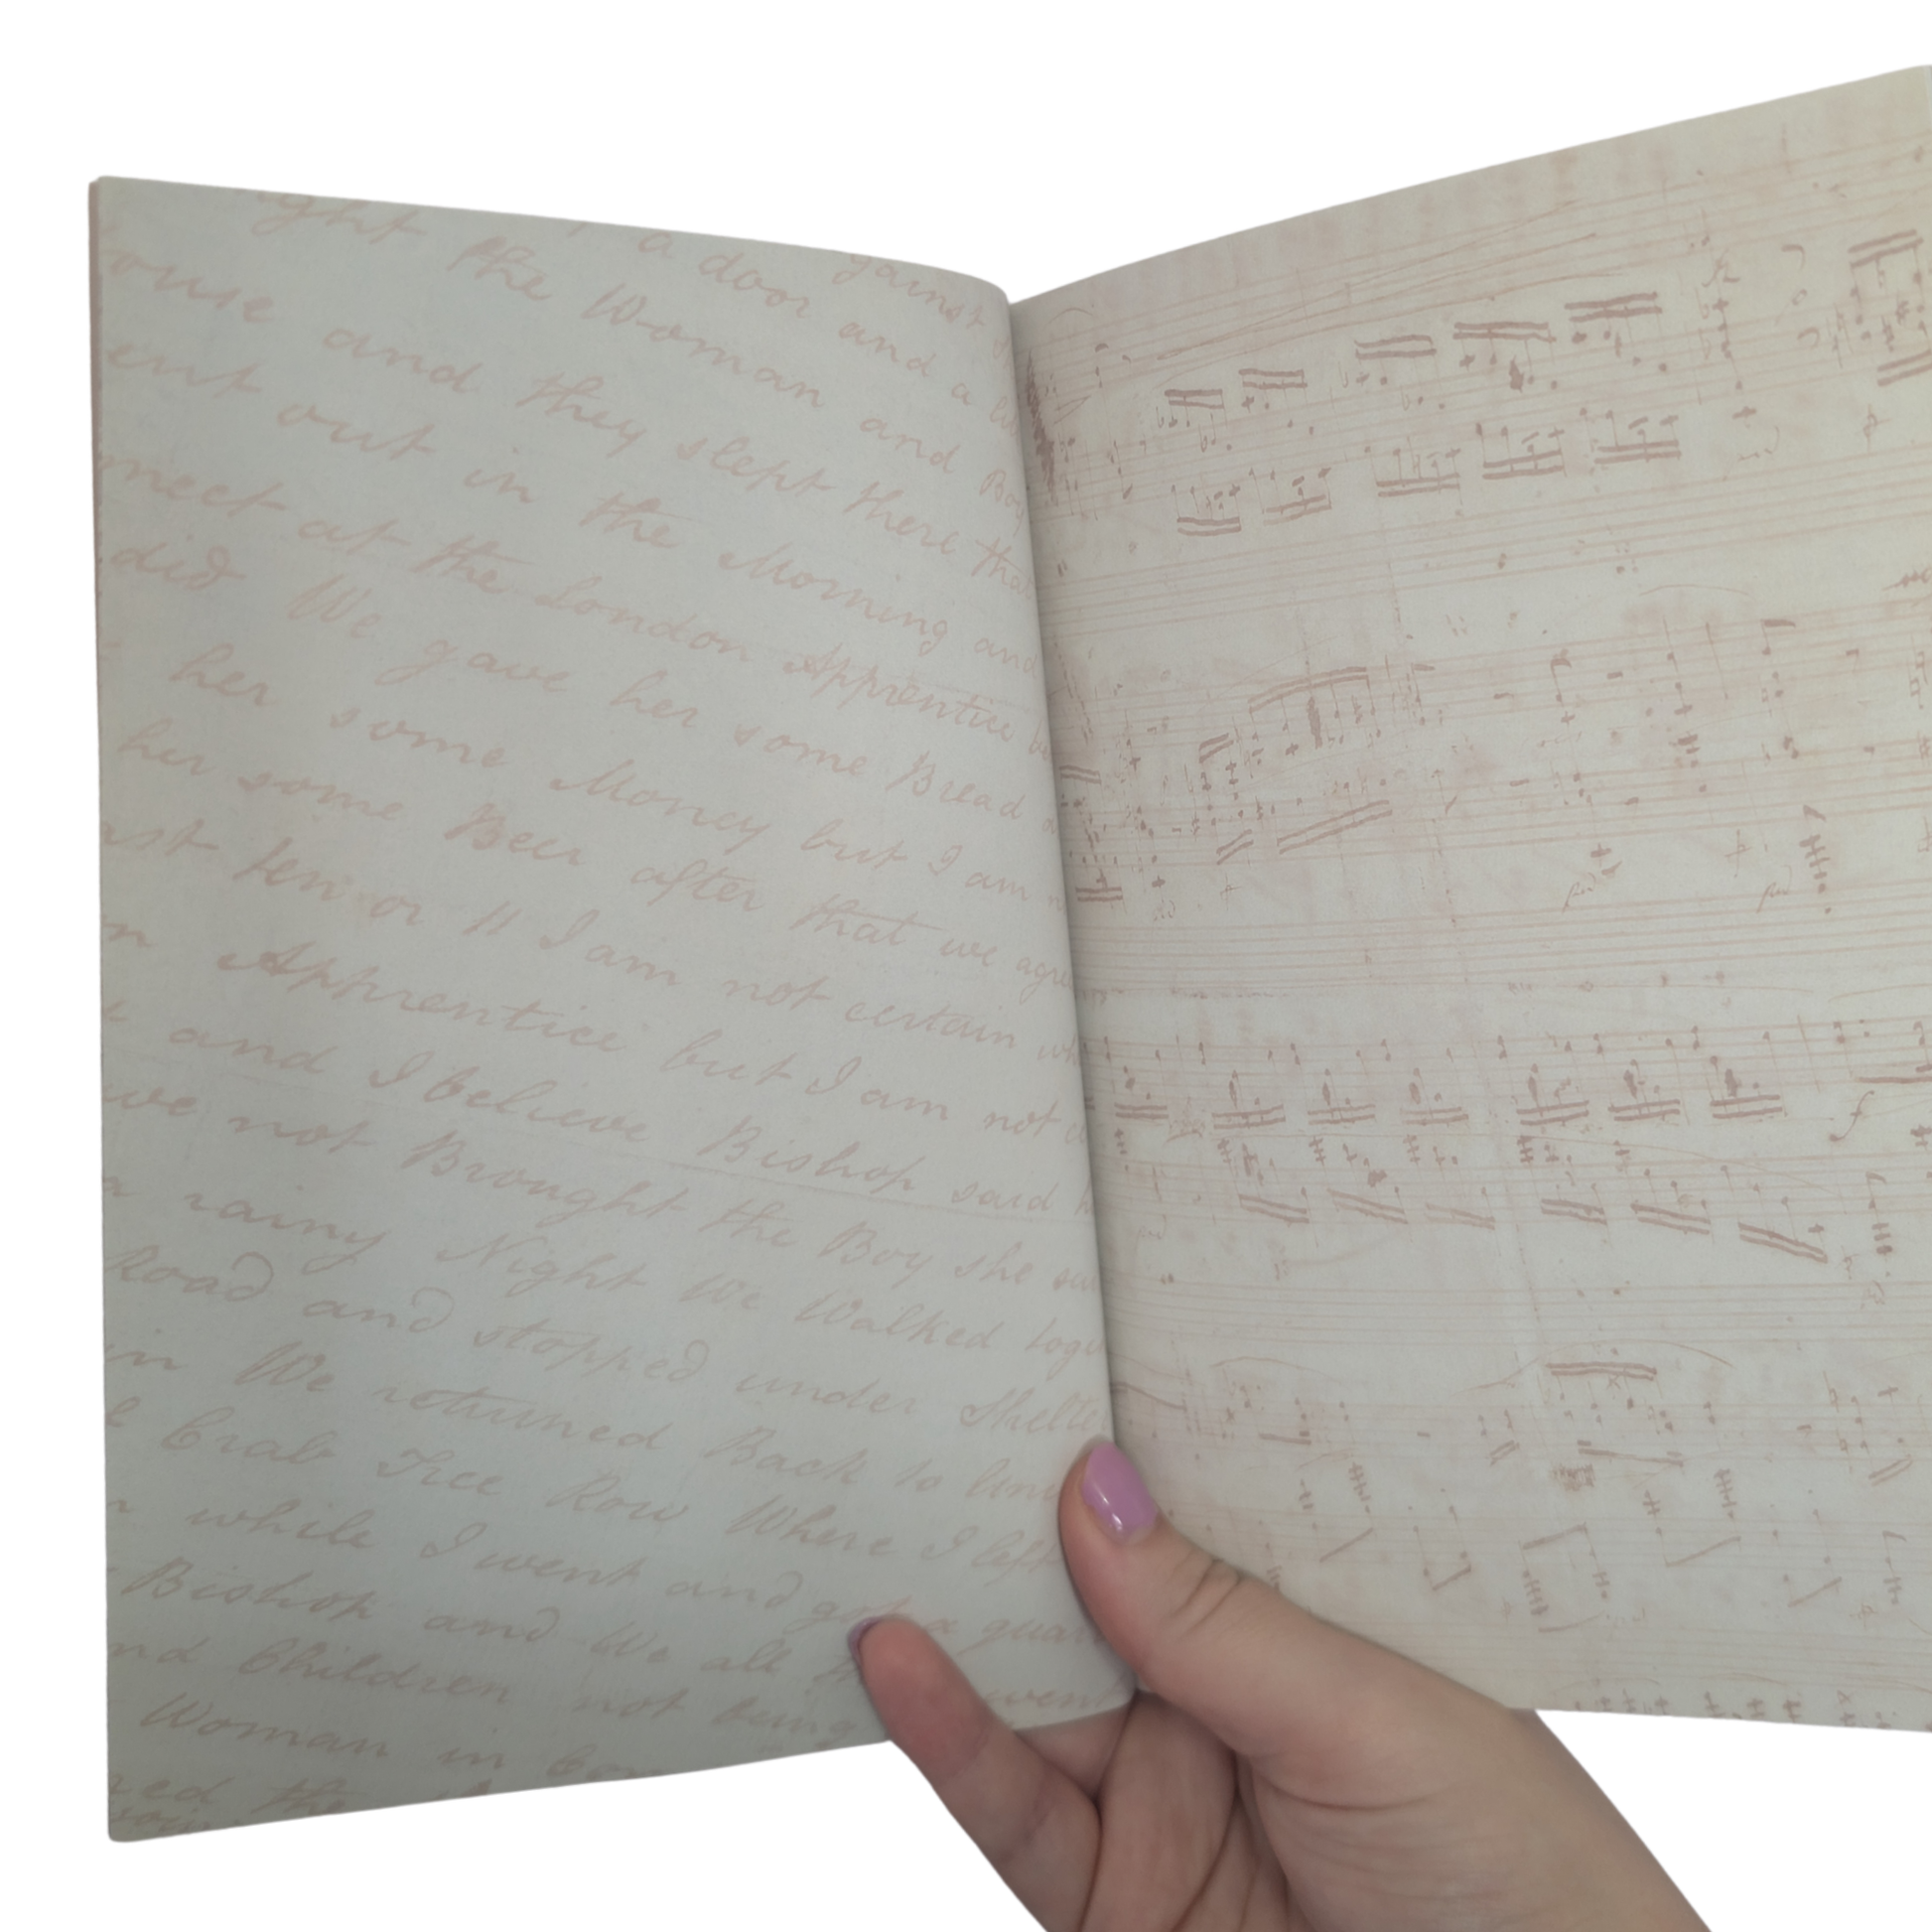 ight a door and a
the Woman and Boy
ouse and they slept there that
ent out in the Morning and
meet at the London Apprentice
did We gave her some Bread
her some Money but I am
her some Beer after that we agre
ast ten or 11 I am not certain
n Apprentice but I am not
and I believe Bishop said
ve not Brought the Boy she
a rainy Night We Walked toge
Road and stopped under Shelte
in We returned Back to
Crab Tree Row Where I left
while I went and got a quar
Bishop and We all went
nd Children not being
Woman in
red the